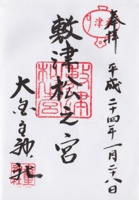 奉拝
平成二十四年一月二十八日
敷津松之宮
大国主神社